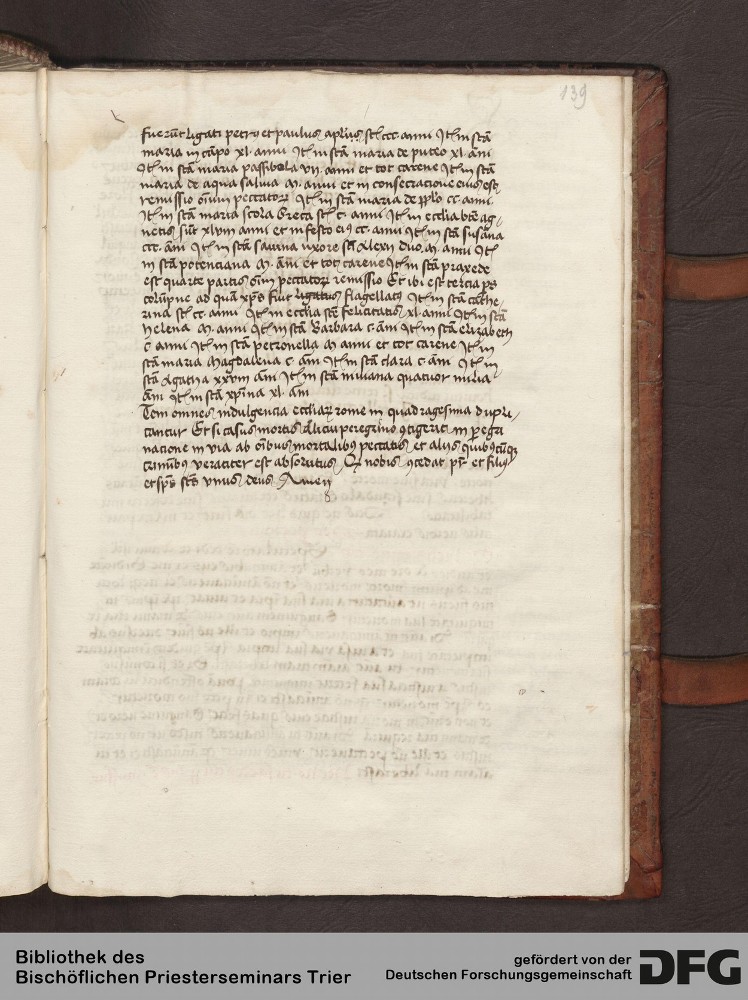 139
fuerūt ligati petrus et paulus aplūs sūt ccc anni Itē in scā
maria in cāpo xl. anni Itē in scā maria de puteo xl. āni
Itē in scā maria passibola vii. anni et tot carene Itē in scā
maria de aqua salina M. anni et in consecracione eius est
remissio oīum peccatorȝ Itē in scā maria de pplo cc. anni.
Itē in scā maria scola greca sūt c. anni Itē in ecclīa btē ag-
netis sūt xlviii anni et in festo eiꝰ cc. anni Itē in scā susāna
ccc. āni Itē in scā savina uxore scī Alexii duo. M. anni Itē
in scā potenciana M. āni et tot carene Itē in scā praxede
est quarte partis oīm peccatorȝ remissio Et ibi est tercia ps
colūpne ad quā xp̄s fuit ligatus flagellatꝰ Itē in scā cathe-
rina sūt cc. anni Itē in ecclīa scē felicitatis xl. anni Itē in scā
helena M. anni Itē in scā Barbara c. āni Itē in scā elizabeth
c anni Itē in scā petronella M anni et tot carene Itē in
scā maria Magdalena c. āni Itē in scā clara c. āni Itē in
scā Agatha xxviii āni Itē in scā viviana quatuor milia
āni Itē in scā xp̄ina xl. āni
Tem omnes indulgencia eccliarȝ rome in quadragesima dupli-
cantur Et si casus mortis Alicui peregrino ꝯtigerit in peregri
nacione in via ab oībus mortalibꝰ peccatis et alijs quibꝰcūqȝ
crimībꝰ veraciter est absolutus Qꝰ nobis ꝯcedat pr̄ et filiꝰ
et sp̄s scūs vnus deus Amen
Bibliothek des
Bischöflichen Priesterseminars Trier
gefördert von der
Deutschen Forschungsgemeinschaft
DFG